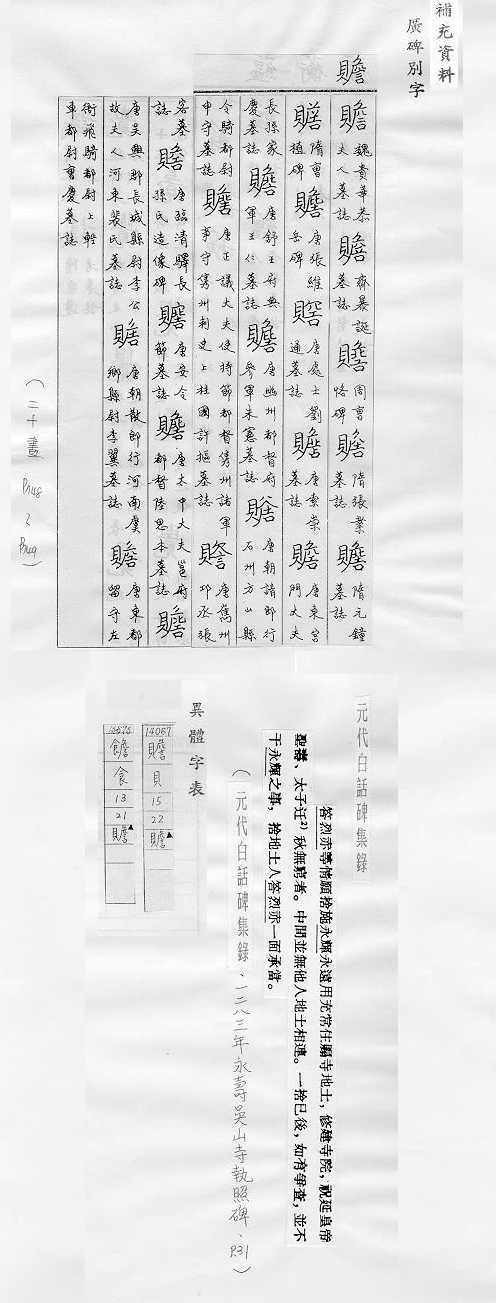 補充資料
廣碑別字
贍
贍 魏貴華恭夫人墓誌 贍 齊暴誕墓誌 贍 周曹恪碑 贍 隋張業墓誌 贍 隋元鐘墓誌
贍 隋曹植碑 贍 唐張維岳碑 贍 唐處士劉通墓誌 贍 唐索崇墓誌 贍 唐東宮門大夫
長孫家慶墓誌 贍 唐舒王府典軍王仁墓誌 贍 唐幽州都督府參軍朱憲墓誌 贍 唐朝請郎行石州方山縣
令騎都尉申守墓誌 贍 唐正議大夫使持節都督儁州諸軍事守儁州刺史上柱國許樞墓誌 贍 唐儁州邛丞張
客墓誌 贍 唐臨清驛長孫氏造像碑 贍 唐安令節墓誌 贍 唐太中大夫邕府都督陸思本墓誌 贍
唐吳興郡長城縣尉李公故夫人河東裴氏墓誌 贍 唐朝散郎行河南虞鄉縣尉李翼墓誌 贍 唐東都留守左
衙飛騎都尉上輕車都尉曹慶墓誌
(二十畫
元代白話碑集錄
答烈赤等情願捨施永輝永遠用充常住贍寺地土,修建寺院,祝延皇帝
聖壽、太子迁2)秋無窮者。中間並無他人地土相連。一捨已後,如有爭查,並不
干永輝之事,捨地土人答烈赤一面承當。
(元代白話碑集錄.一二八三年永壽吳山寺執照碑.P.31)
異體字表
14067
贍
貝
15
22
贍▲
食
13
21
贍▲